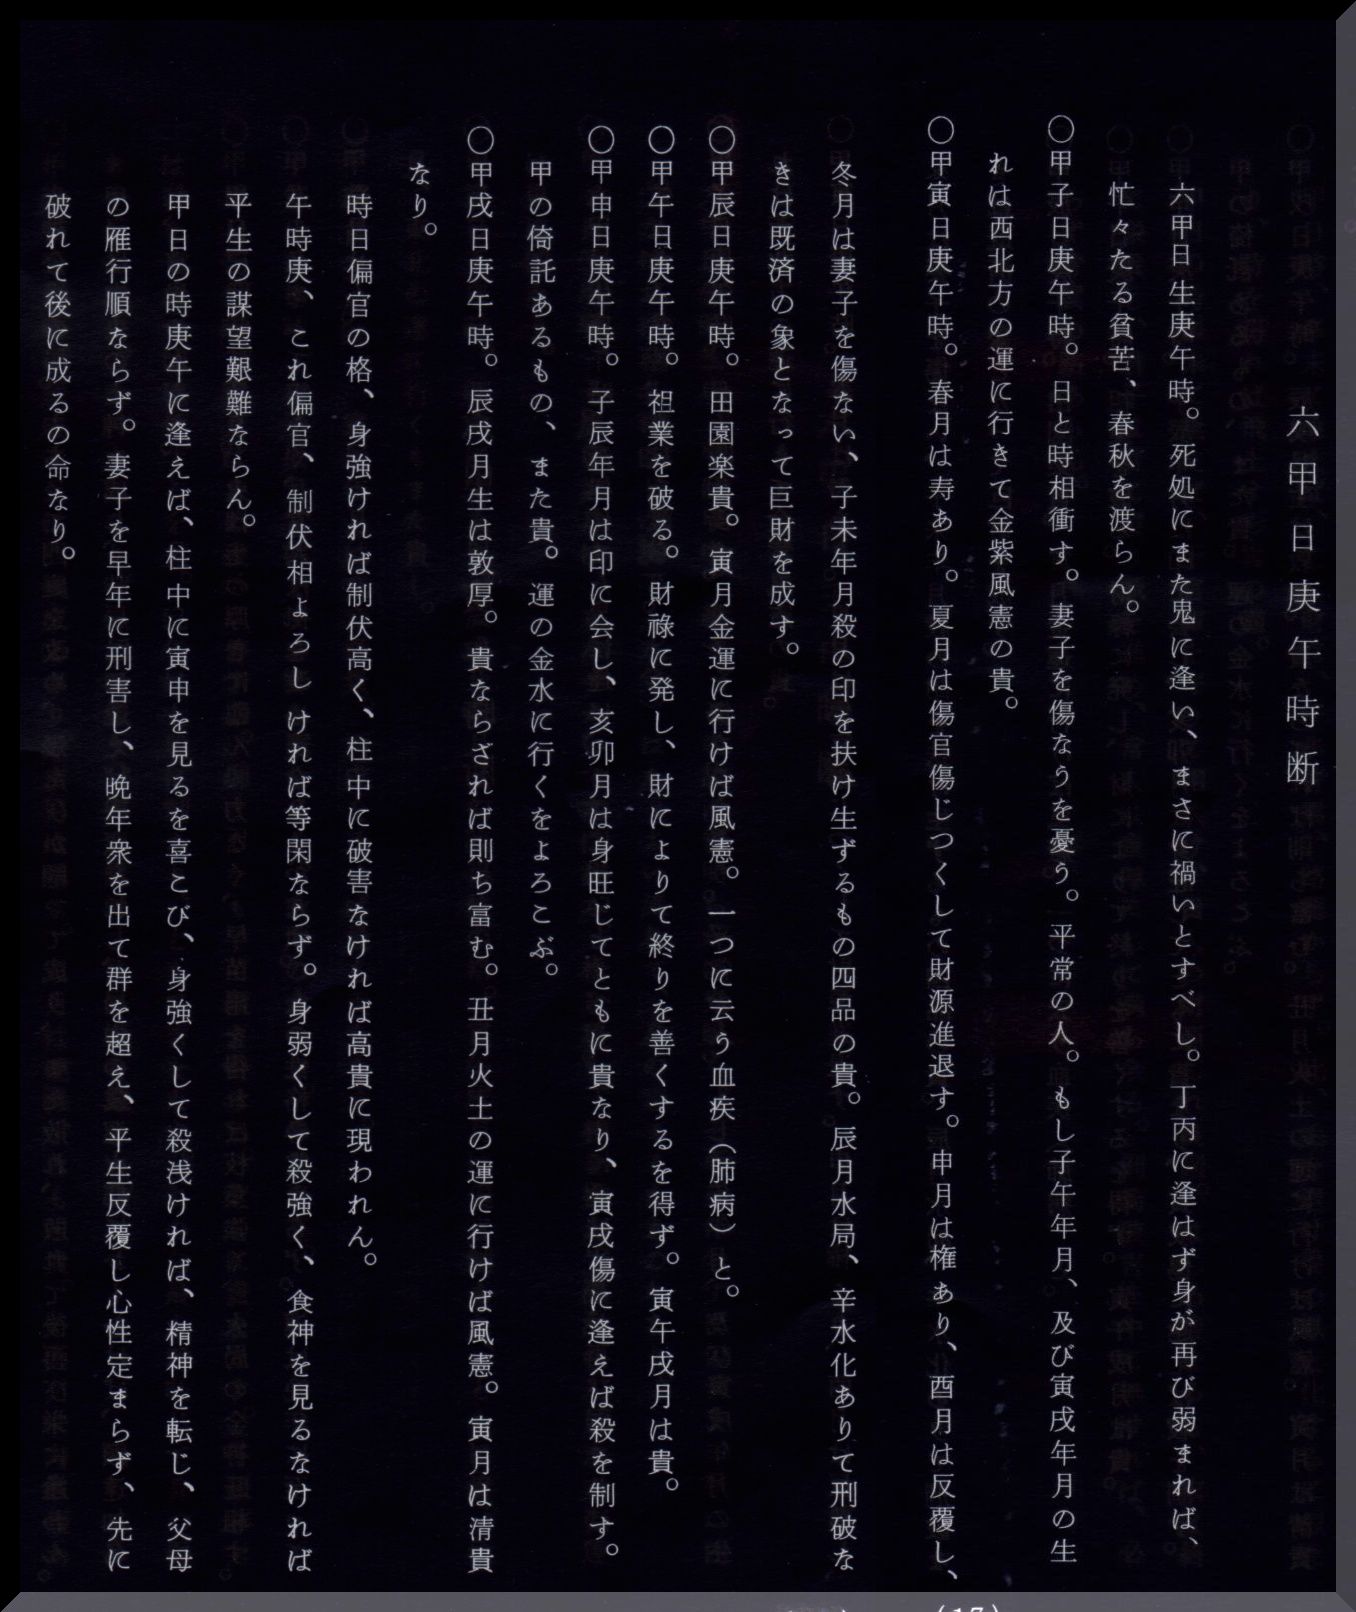 六甲日庚午時断
六甲日生庚午時。死処にまた鬼に逢い、まさに禍いとすべし。丁丙に逢はず身が再び弱まれば、
忙々たる貧苦、春秋を渡らん。
〇甲子日庚午時。日と時相衝す。妻子を傷なうを憂う。平常の人。もし子午年月、及び寅戌年月の生
れは西北方の運に行きて金紫風憲の貴。
〇甲寅日庚午時。春月は寿あり。夏月は傷官傷じつくして財源進退す。申月は権あり、酉月は反覆し、
冬月は妻子を傷ない、子未年月殺の印を扶け生ずるもの四品の貴。辰月水局、辛水化ありて刑破な
きは既済の象となって巨財を成す。
〇甲辰日庚午時。田園楽貴。寅月金運に行けば風憲。一つに云う血疾（肺病）と。
〇甲午日庚午時。祖業を破る。財祿に発し、財によりて終りを善くするを得ず。寅午戌月は貴。
〇甲申日庚午時。子辰年月は印に会し、亥卯月は身旺じてともに貴なり、寅戌傷に逢えば殺を制す。
甲の倚託あるもの、また貴。運の金水に行くをよろこぶ。
〇甲戌日庚午時。辰戌月生は敦厚。貴ならざれば則ち富む。丑月火土の運に行けば風憲。寅月は清貴
なり。
時日偏官の格、身強ければ制伏高く、柱中に破害なければ高貴に現われん。
午時庚、これ偏官、制伏相よろしければ等閑ならず。身弱くして殺強く、食神を見るなければ
平生の謀望艱難ならん。
甲日の時庚午に逢えば、柱中に寅申を見るを喜こび、身強くして殺浅ければ、精神を転じ、父母
の雁行順ならず。妻子を早年に刑害し、晩年衆を出て群を超え、平生反覆し心性定まらず、先に
破れて後に成るの命なり。